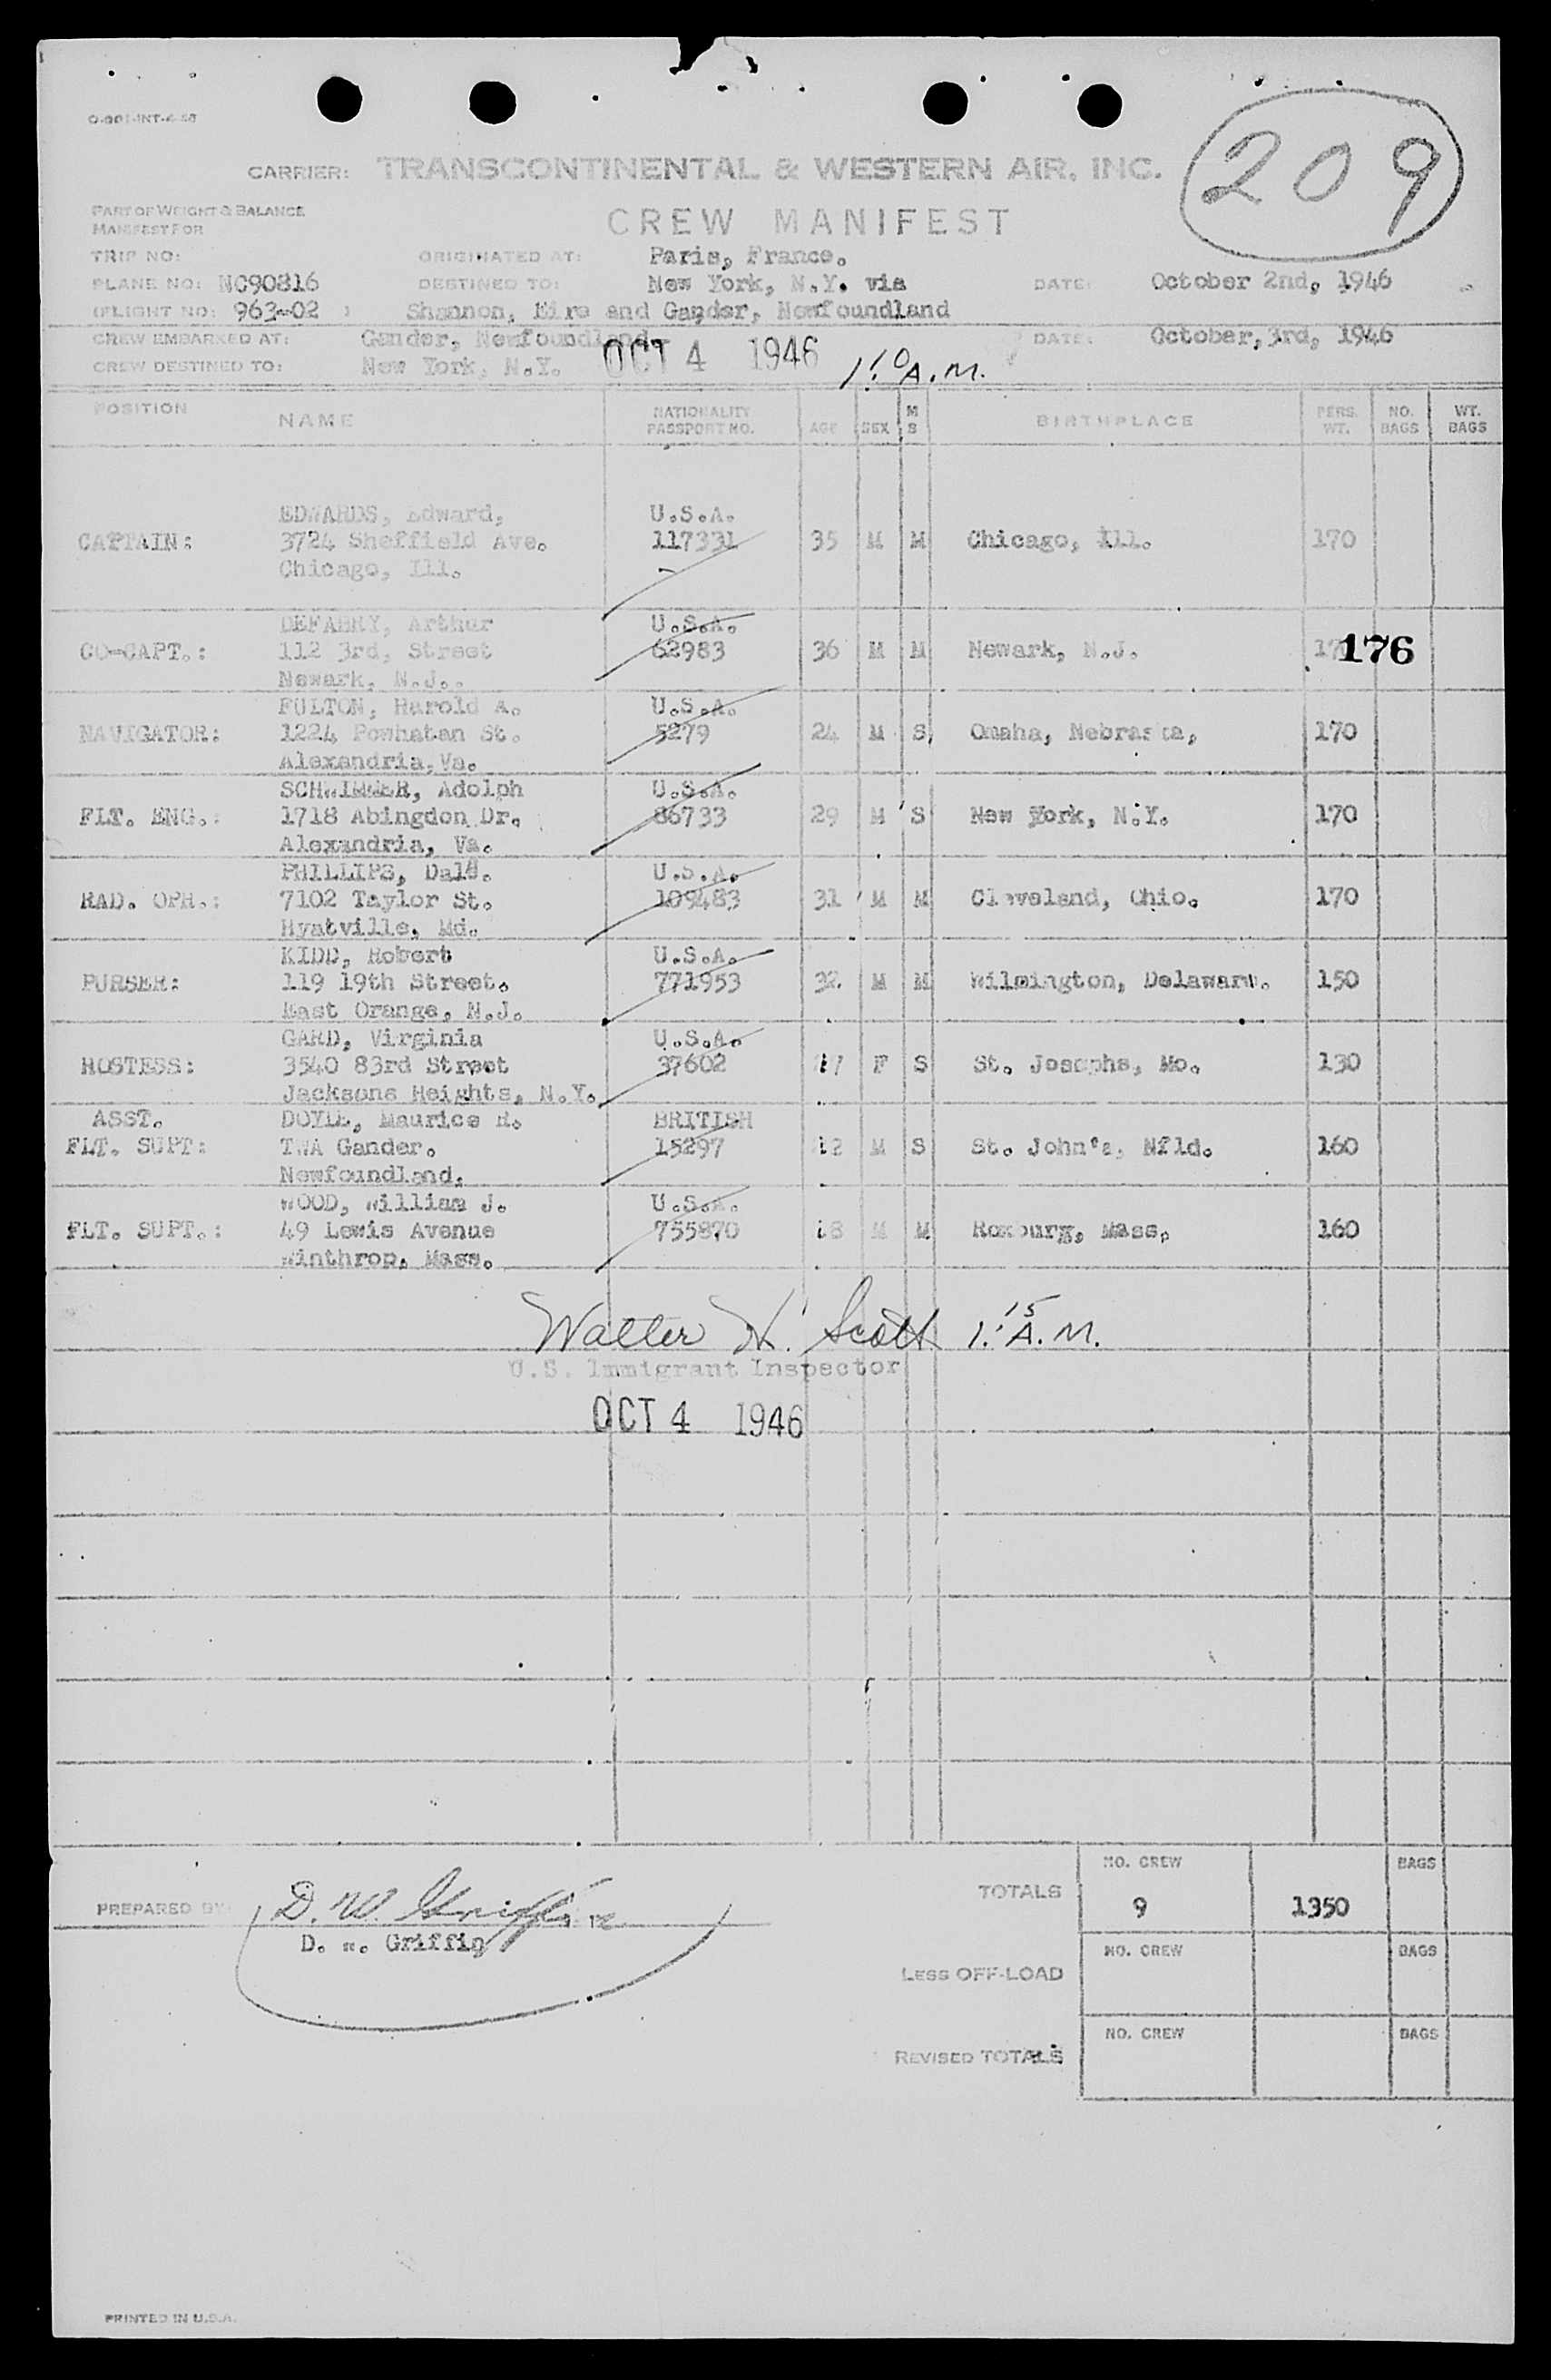 209
CARRIER: TRANSCONTINENTAL & WESTERN AIR, INC.
PART OF WEIGHT & BALANCE
MANIFEST FOR
CREW MANIFEST
TRIP NO: ORIGINATED AT: Paris, France.
PLANE NO: NC90816 DESTINED TO: New York, N.Y. via DATE: October 2nd, 1946
(FLIGHT NO: 963-02 ) Shannon, Eire and Gander, Newfoundland
CREW EMBARKED AT: Gander, Newfoundland, DATE: October, 3rd, 1946
CREW DESTINED TO: New York, N.Y. OCT 4 1946 1:10 A.M.
POSITION NAME NATIONALITY PASSPORT NO. AGE SEX M S BIRTHPLACE PERS. WT. NO. BAGS WT. BAGS
EDWARDS, Edward, U.S.A.
CAPTAIN: 3724 Sheffield Ave. 117331 35 M M Chicago, Ill. 170
Chicago, Ill.
DEFABRY, Arthur U.S.A.
CO-CAPT.: 112 3rd, Street 62983 36 M M Newark, N.J. 176
Newark, N.J..
FULTON, Harold A. U.S.A.
NAVIGATOR: 1224 Powhatan St. 5279 24 M S Omaha, Nebraska, 170
Alexandria, Va.
SCHWIMMER, Adolph U.S.A.
FLT. ENG.: 1718 Abingdon Dr. 86733 29 M S New York, N.Y. 170
Alexandria, Va.
PHILLIPS, Dale. U.S.A.
RAD. OPR.: 7102 Taylor St. 109483 31 M M Cleveland, Ohio. 170
Hyatville, Md.
KIDD, Robert U.S.A.
PURSER: 119 19th Street. 771953 32 M M Wilmington, Delaware. 150
East Orange, N.J.
GARD, Virginia U.S.A.
HOSTESS: 3540 83rd Street 37602 F S St. Josephs, Mo. 130
Jacksons Heights, N.Y.
ASST. DOYLE, Maurice BRITISH
FLT. SUPT: TWA Gander. 15297 M S St. John's, Nfld. 160
Newfoundland.
WOOD, William J. U.S.A.
FLT. SUPT.: 49 Lewis Avenue 755870 M M Roxbury, Mass. 160
Winthrop, Mass.
Walter H. Scott 1:15 A.M.
U.S. Immigrant Inspector
OCT 4 1946
NO. CREW BAGS
TOTALS 9 1350
PREPARED BY: D. W. Griffin
D. W. Griffin
NO. CREW BAGS
LESS OFF-LOAD
NO. CREW BAGS
REVISED TOTALS
PRINTED IN U.S.A.